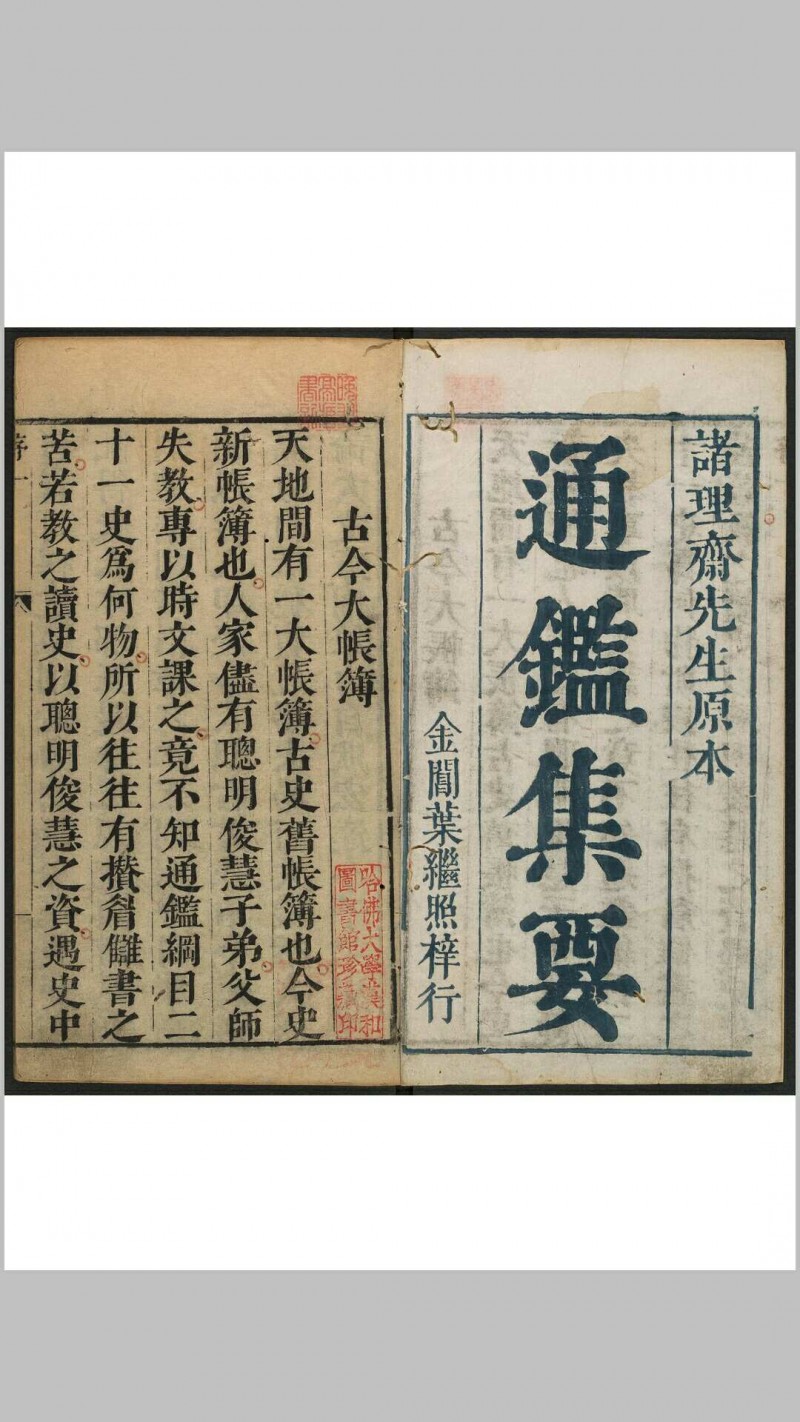 諸理齋先生原本
通鑑集要
金閶葉繼照梓行
古今大帳簿
哈佛大學漢和
圖書館珍藏印
天地間有一大帳簿古史舊帳簿也今史
新帳簿也人家儘有聰明俊慧子弟父師
失教專以時文課之竟不知通鑑綱目二
十一史爲何物所以往往有攅眉讎書之
苦若教之讀史以聰明俊慧之資遇史中
序一